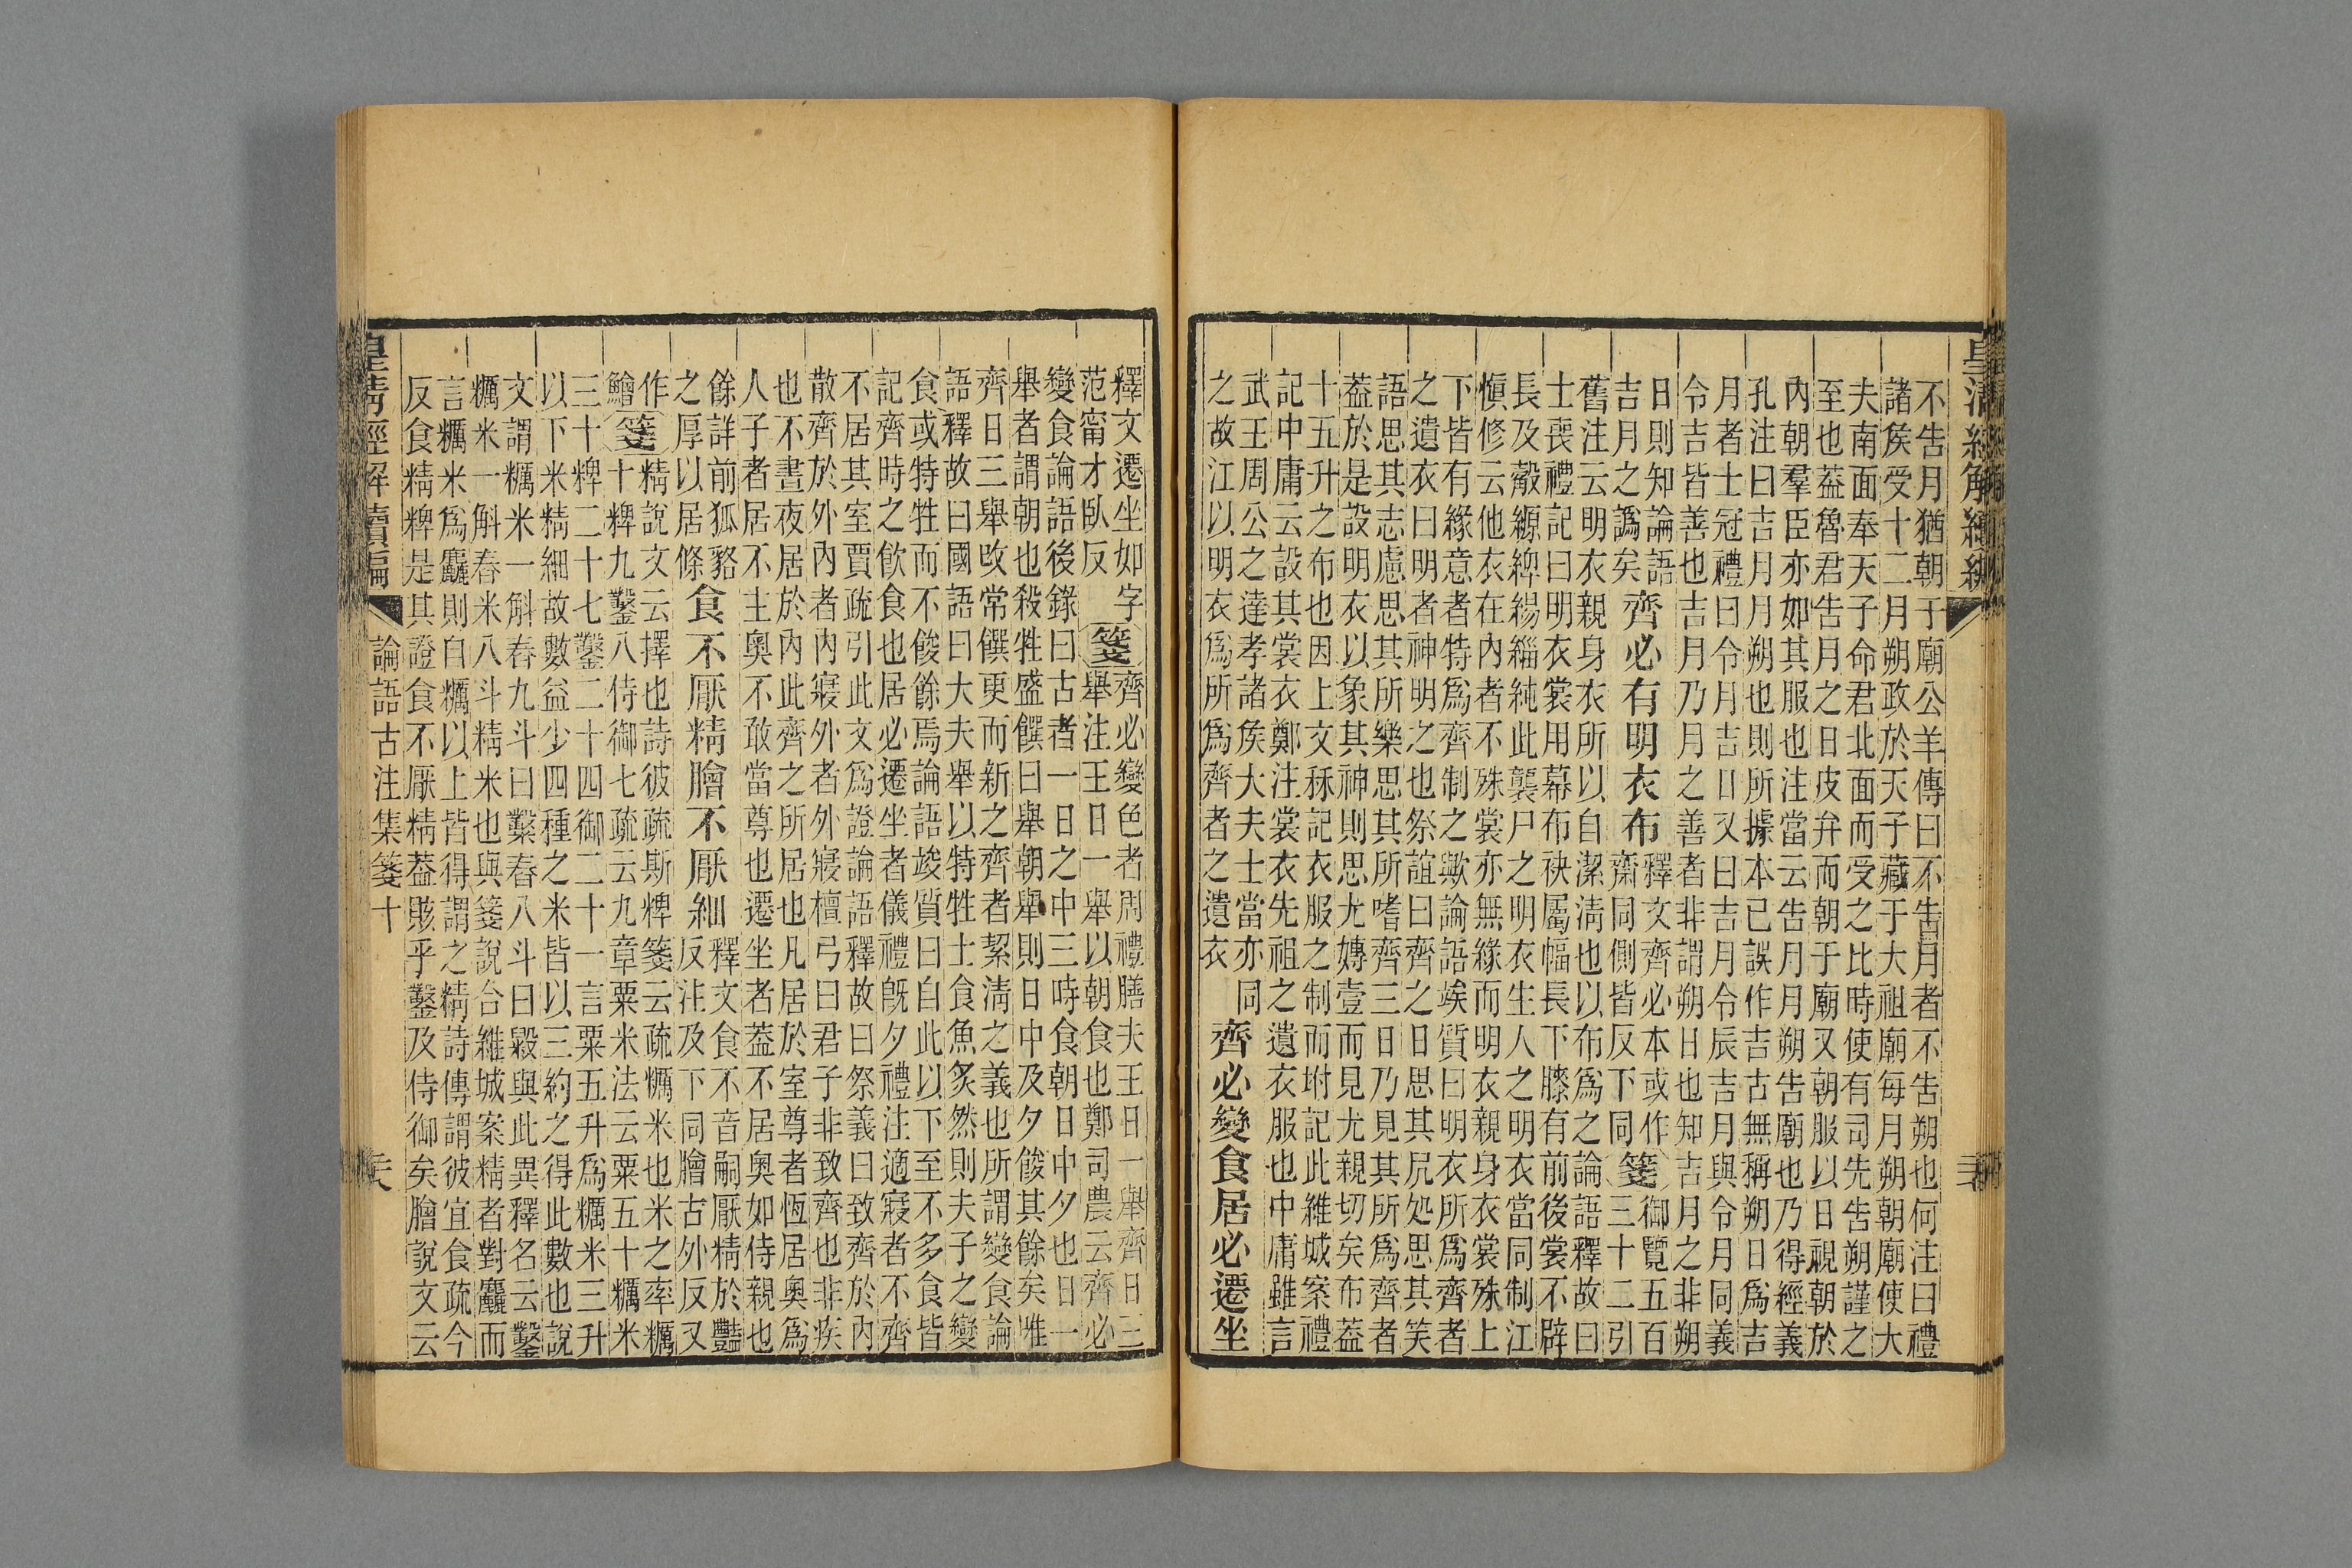 皇清經解續編
不告月猶朝于廟公羊傳曰不告月者不告朔也何注曰禮
諸矦受十二月朔政於天子藏于大祖廟每月朔朝廟使大
夫南面奉天子命君北面而受之比時使有司先告朔謹之
至也葢魯君告月之日皮弁而朝于廟又朝服以日視朝於
內朝羣臣亦如其服也注當云告月月朔告廟也乃得經義
孔注曰吉月月朔也則所據本已誤作吉古無稱朔日爲吉
月者士冠禮曰令月吉日又曰吉月令辰吉月與令月同義
令吉皆善也吉月乃月之善者非謂朔日也知吉月之非朔
日則知論語
吉月之譌矣
齊必有明衣布
釋文齊必本或作
齋同側皆反下同
箋
御覽五百
三十二引
舊注云明衣親身衣所以自潔淸也以布爲之論語釋故曰
士喪禮記曰明衣裳用幕布袂屬幅長下膝有前後裳不辟
長及觳縓綼緆緇純此襲尸之明衣生人之明衣當同制江
愼修云他衣在內者不殊裳亦無緣而明衣親身衣裳殊上
下皆有緣意者特爲齊制之歟論語竢質曰明衣所爲齊者
之遺衣曰明者神明之也祭誼曰齊之日思其凥処思其笑
語思其志慮思其所樂思其所嗜齊三日乃見其所爲齊者
葢於是設明衣以象其神則思尤嫥壹而見尤親切矣布葢
十五升之布也因上文袗記衣服之制而坿記此維城案禮
記中庸云設其裳衣鄭注裳衣先祖之遺衣服也中庸雖言
武王周公之達孝諸矦大夫士當亦同
之故江以明衣爲所爲齊者之遺衣
齊必變食居必遷坐
釋文遷坐如字
范甯才臥反
箋
齊必變色者周禮膳夫王日一舉齊日三
舉注王日一舉以朝食也鄭司農云齊必
變食論語後錄曰古者一日之中三時食朝日中夕也日一
舉者謂朝也殺牲盛饌曰舉朝舉則日中及夕餕其餘矣唯
齊日三舉改常饌更而新之齊者絜淸之義也所謂變食論
語釋故曰國語曰大夫舉以特牲士食魚炙然則夫子之變
食或特牲而不餕餘焉論語竢質曰自此以下至不多食皆
記齊時之飮食也居必遷坐者儀禮旣夕禮注適寢者不齊
不居其室賈疏引此文爲證論語釋故曰祭義曰致齊於內
散齊於外內者內寢外者外寢檀弓曰君子非致齊也非疾
也不晝夜居於內此齊之所居也凡居於室尊者恆居奧爲
人子者居不主奧不敢當尊也遷坐者葢不居奧如侍親也
餘詳前狐貉
之厚以居條
食不厭精膾不厭細
釋文食不音嗣厭精於豔
反注及下同膾古外反又
作
鱠
箋
精說文云擇也詩彼疏斯粺箋云疏糲米也米之率糲
十粺九鑿八侍御七疏云九章粟米法云粟五十糲米
三十粺二十七鑿二十四御二十一言粟五升爲糲米三升
以下米精細故數益少四種之米皆以三約之得此數也說
文謂糲米一斛舂九斗曰糳舂八斗曰毇與此異釋名云鑿
糲米一斛舂米八斗精米也與箋說合維城案精者對麤而
言糲米爲麤則自糲以上皆得謂之精詩傳謂彼宜食疏今
反食精粺是其證食不厭精葢賅乎鑿及侍御矣膾說文云
皇清經解續編 論語古注集箋十